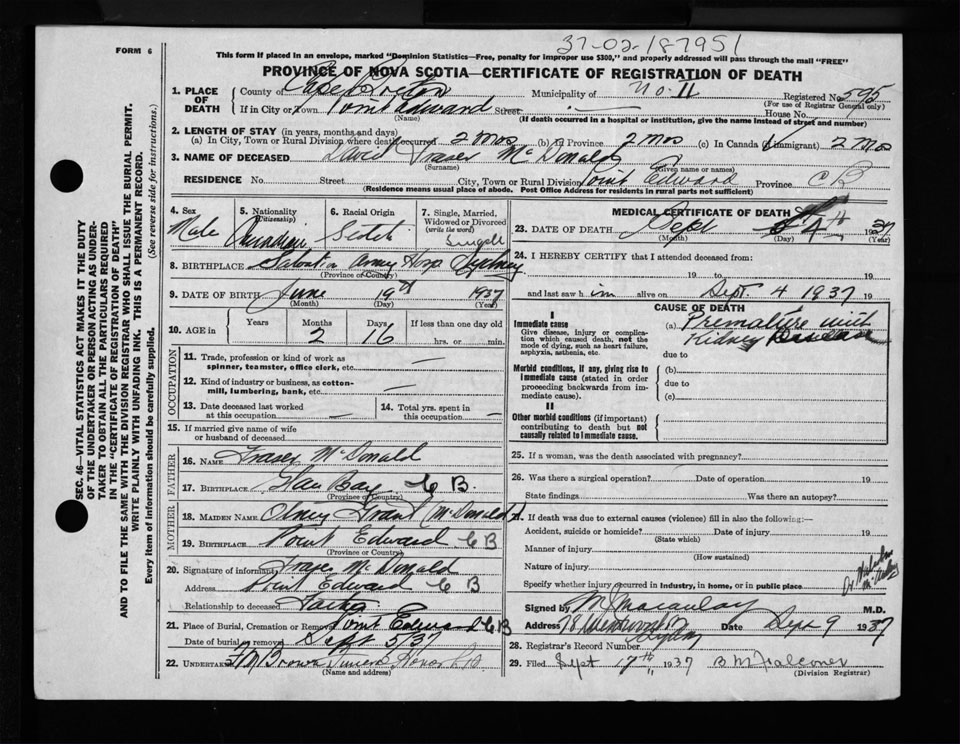 37-02-187951
FORM 6
This form if placed in an envelope, marked "Dominion Statistics—Free, penalty for improper use $300," and properly addressed will pass through the mail "FREE"
PROVINCE OF NOVA SCOTIA—CERTIFICATE OF REGISTRATION OF DEATH
SEC. 46—VITAL STATISTICS ACT MAKES IT THE DUTY
OF THE UNDERTAKER OR PERSON ACTING AS UNDER-
TAKER TO OBTAIN ALL THE PARTICULARS REQUIRED
IN THE "CERTIFICATE OF REGISTRATION OF DEATH"
AND TO FILE THE SAME WITH THE DIVISION REGISTRAR WHO SHALL ISSUE THE BURIAL PERMIT.
WRITE PLAINLY WITH UNFADING INK. THIS IS A PERMANENT RECORD.
Every item of information should be carefully supplied. (See reverse side for instructions.)
1. PLACE OF DEATH County of Cape Breton Municipality of No. 11 Registered No. 595
(For use of Registrar General only)
If in City or Town Point Edward Street — House No.
(Name) (If death occurred in a hospital or institution, give the name instead of street and number)
2. LENGTH OF STAY (in years, months and days)
(a) In City, Town or Rural Division where death occurred 2 Mos (b) In Province 2 Mos (c) In Canada (if immigrant) 2 Mos
3. NAME OF DECEASED David Fraser McDonald
(Surname) (Given name or names)
RESIDENCE No. Street City, Town or Rural Division Point Edward Province C B
(Residence means usual place of abode. Post Office Address for residents in rural parts not sufficient)
4. Sex Male
5. Nationality (Citizenship) Canadian
6. Racial Origin Scotch
7. Single, Married, Widowed or Divorced (write the word) Single
8. BIRTHPLACE Salvation Army Hosp. Sydney
(Province or Country)
9. DATE OF BIRTH June 19th 1937
(Month) (Day) (Year)
10. AGE in Years Months 2 Days 16 If less than one day old hrs. or min.
OCCUPATION
11. Trade, profession or kind of work as spinner, teamster, office clerk, etc. —
12. Kind of industry or business, as cotton-mill, lumbering, bank, etc. —
13. Date deceased last worked at this occupation —
14. Total yrs. spent in this occupation —
15. If married give name of wife or husband of deceased
FATHER
16. NAME Fraser McDonald
17. BIRTHPLACE Bay C B.
(Province or Country)
MOTHER
18. MAIDEN NAME Grant (McDonald)
19. BIRTHPLACE Point Edward C B
(Province or Country)
20. Signature of informant Fraser McDonald
Address Point Edward C B
Relationship to deceased Father
21. Place of Burial, Cremation or Removal Point Edward C B
Date of burial or removal Sept 5/37
22. UNDERTAKER Brown Funeral
(Name and address)
MEDICAL CERTIFICATE OF DEATH
23. DATE OF DEATH Sept 4th 1937
(Month) (Day) (Year)
24. I HEREBY CERTIFY that I attended deceased from:
19 to 19
and last saw him alive on Sept. 4 1937 19
CAUSE OF DEATH
I
Immediate cause
Give disease, injury or complication which caused death, not the mode of dying, such as heart failure, asphyxia, asthenia, etc.
(a) Premature with
Kidney Disease
due to
Morbid conditions, if any, giving rise to immediate cause (stated in order proceeding backwards from immediate cause).
(b)
due to
(c)
II
Other morbid conditions (if important) contributing to death but not causally related to immediate cause.
25. If a woman, was the death associated with pregnancy?
26. Was there a surgical operation? Date of operation 19
State findings Was there an autopsy?
27. If death was due to external causes (violence) fill in also the following:—
Accident, suicide or homicide? Date of injury 19
(State which)
Manner of injury
(How sustained)
Nature of injury
Specify whether injury occurred in Industry, in home, or in public place
Signed by M J Macaulay M.D.
Address 78 Sydney Date Sept 9 1937
28. Registrar's Record Number
29. Filed Sept 17th 1937 B M Falconer
(Division Registrar)